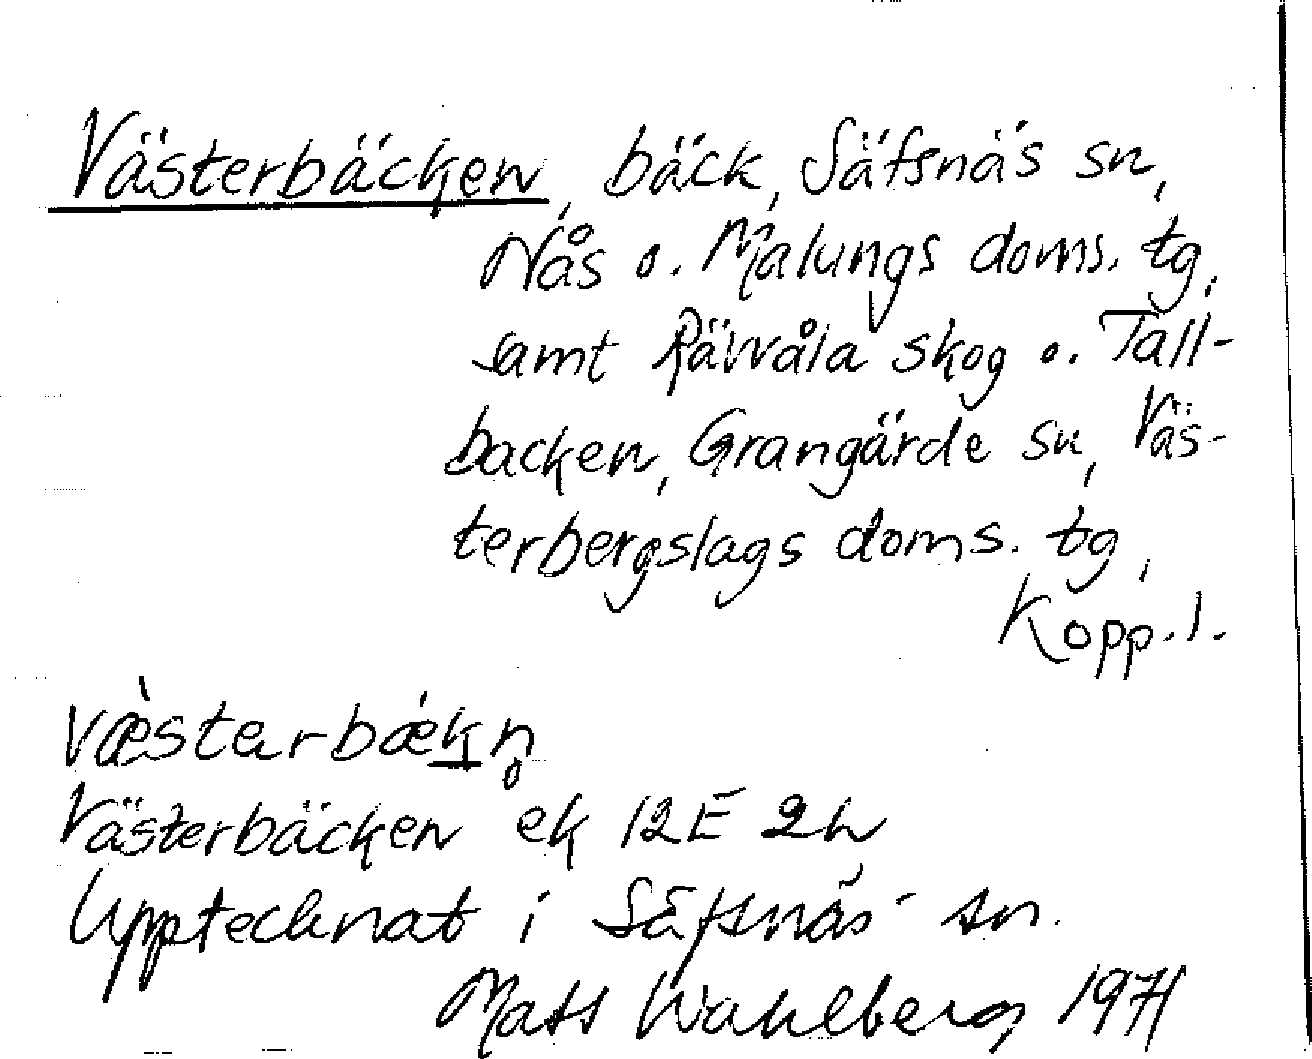 Västerbäcken, bäck, Säfsnäs sn,
Nås o. Malungs doms. tg,
samt Rävvåla skog o. Tall-
backen, Grangärde sn, Väs-
terbergslags doms. tg,
Kopp. l.
væ̀starbæ̀kn̥
Västerbäcken ek 12E 2h
Upptecknat i Säfsnäs sn.
Mats Wahlberg 1971